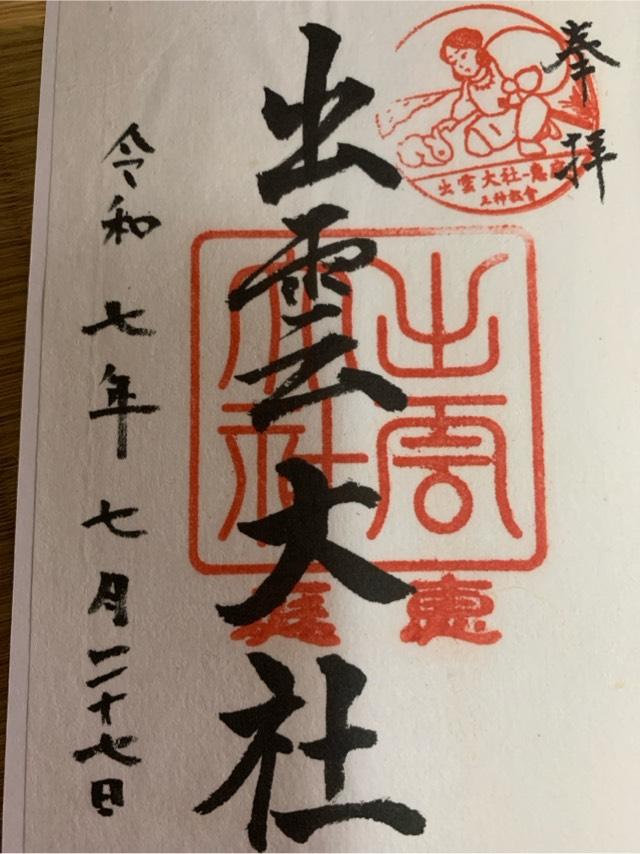 奉拝
出雲大社
令和七年七月二十七日
出雲大社-恵庭
正神教會
出雲
大社
恵
庭